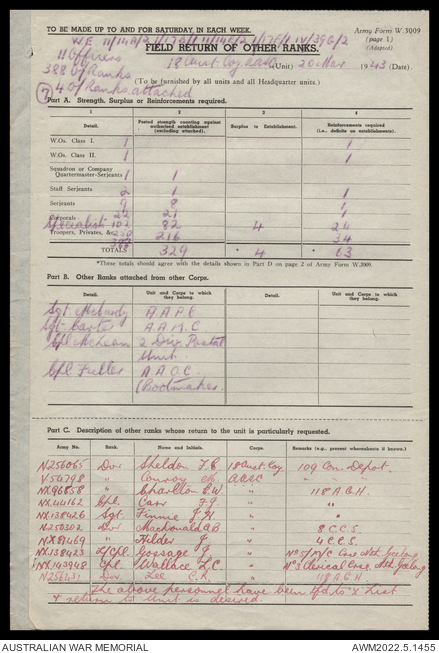 TO BE MADE UP TO AND FOR SATURDAY, IN EACH WEEK.
Army Form W.3009
(page 1)
(Adapted)
W.E. II/14A/2 I/17G/1 II/14E/2 I/17F/1 IV/39G/2
FIELD RETURN OF OTHER RANKS.
11 Officers
18 Aust Coy AASC (Unit) 20 Mar 1943 (Date).
388 O/Ranks
(To be furnished by all units and all Headquarter units.)
7 4 O/Ranks attached
Part A. Strength, Surplus or Reinforcements required.
1 2 3 4
Detail. Posted strength counting against authorised establishment (excluding attached). Surplus to Establishment. Reinforcements required (i.e., deficits on establishment).
W.Os. Class I. 1 1
W.Os. Class II. 1 1
Squadron or Company
Quartermaster-Serjeants 1 1
Staff Serjeants 2 1 1
Serjeants 9 8 1
Corporals 22 21 1
Specialist 102 82 4 24
Troopers, Privates, &c. 250 216 34
TOTALS 388 329 * 4 * 63
*These totals should agree with the details shown in Part D on page 2 of Army Form W.3009.
Part B. Other Ranks attached from other Corps.
Detail. Unit and Corps to which they belong. Detail. Unit and Corps to which they belong.
Sgt A A P C
Sgt Carter A A M C
Cpl McLean 2 Div Postal
Unit.
Cpl Fuller A A O C
(Bootmaker.
Part C. Description of other ranks whose return to the unit is particularly requested.
Army No. Rank. Name and Initials. Corps. Remarks (e.g., present whereabouts if known.)
N256065 Dvr Sheldon F.C. 18 Aust. Coy. 109 Con. Depot.
V54798 " Conroy M. AASC " "
NX96858 " Charlton E.W. " 118 A.G.H.
NX44162 Cpl. Carr F.J. " "
NX138426 Sgt. Finnie J.H. "
N250302 Dvr Macdonald A.B. " 8 C.C.S.
NX89469 " Hilder J. " 4 C.C.S.
NX138423 L/Cpl. Gossage F.J. " No 5 M/C Crse Nth. Geelong
NX143948 Cpl. Wallace L.C. " No 3 Clerical Crse. Nth. Geelong
N256431 Dvr. Lee C.R. " 118 A.G.H.
The above personnel have been tfd to "X" List
& return to Unit is desired.
AUSTRALIAN WAR MEMORIAL
AWM2022.5.1455